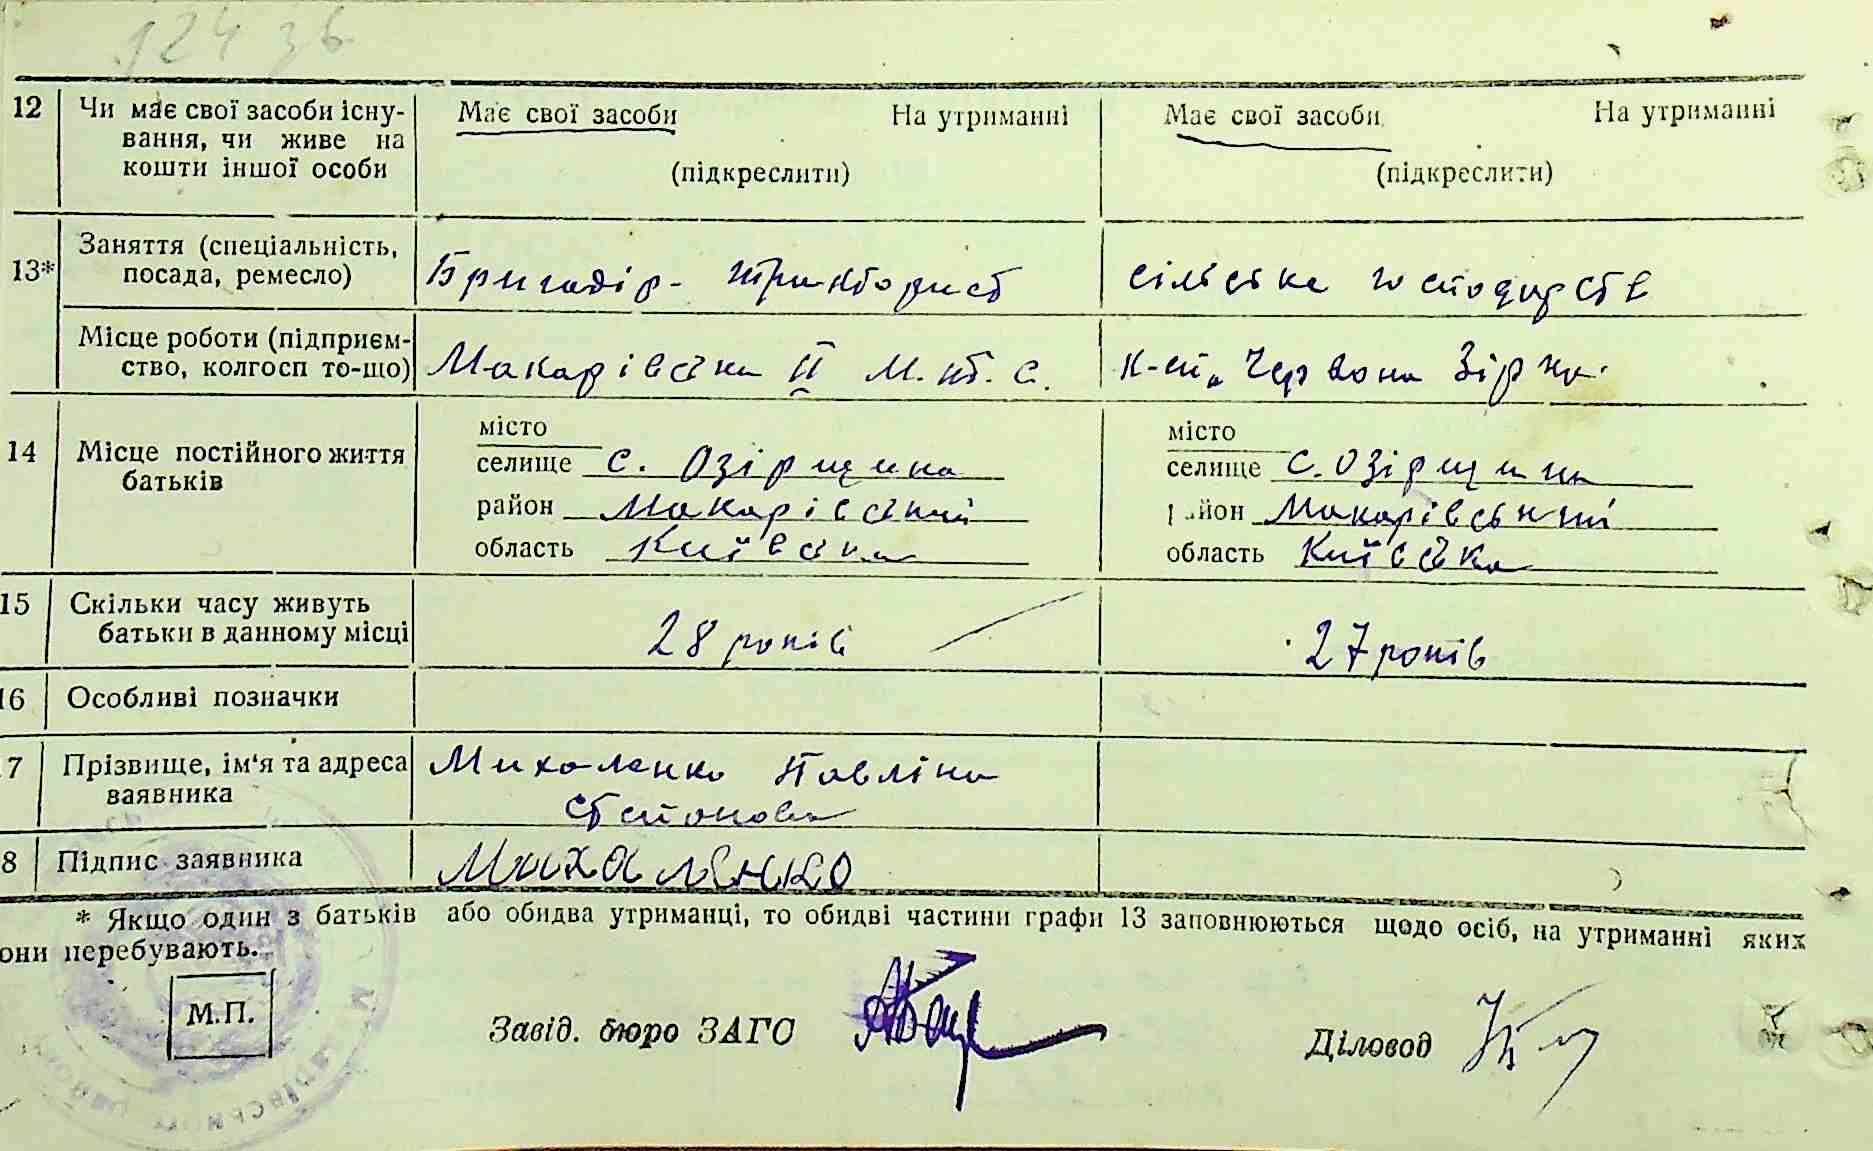 12436
12 Чи має свої засоби існу- Має свої засоби На утриманні Має свої засоби На утриманні
вання, чи живе на
кошти іншої особи (підкреслити) (підкреслити)
13* Заняття (спеціальність,
посада, ремесло) Бригадір - тракторист сільське господарств
Місце роботи (підприєм-
ство, колгосп то-що) Макарівська ІІ М.т.с. к-сп „Червона Зірка
14 Місце постійного життя
батьків
місто місто
селище с. Озірщина селище с. Озірщина
район Макарівський район Макарівський
область Київська область Київська
15 Скільки часу живуть
батьки в данному місці 28 років 27 років
16 Особливі позначки
7 Прізвище, ім'я та адреса Михаленко Павліна
заявника Степанова
8 Підпис заявника Михаленко
* Якщо один з батьків або обидва утриманці, то обидві частини графи 13 заповнюються щодо осіб, на утриманні яких
они перебувають.
М.П. Завід. бюро ЗАГС Діловод